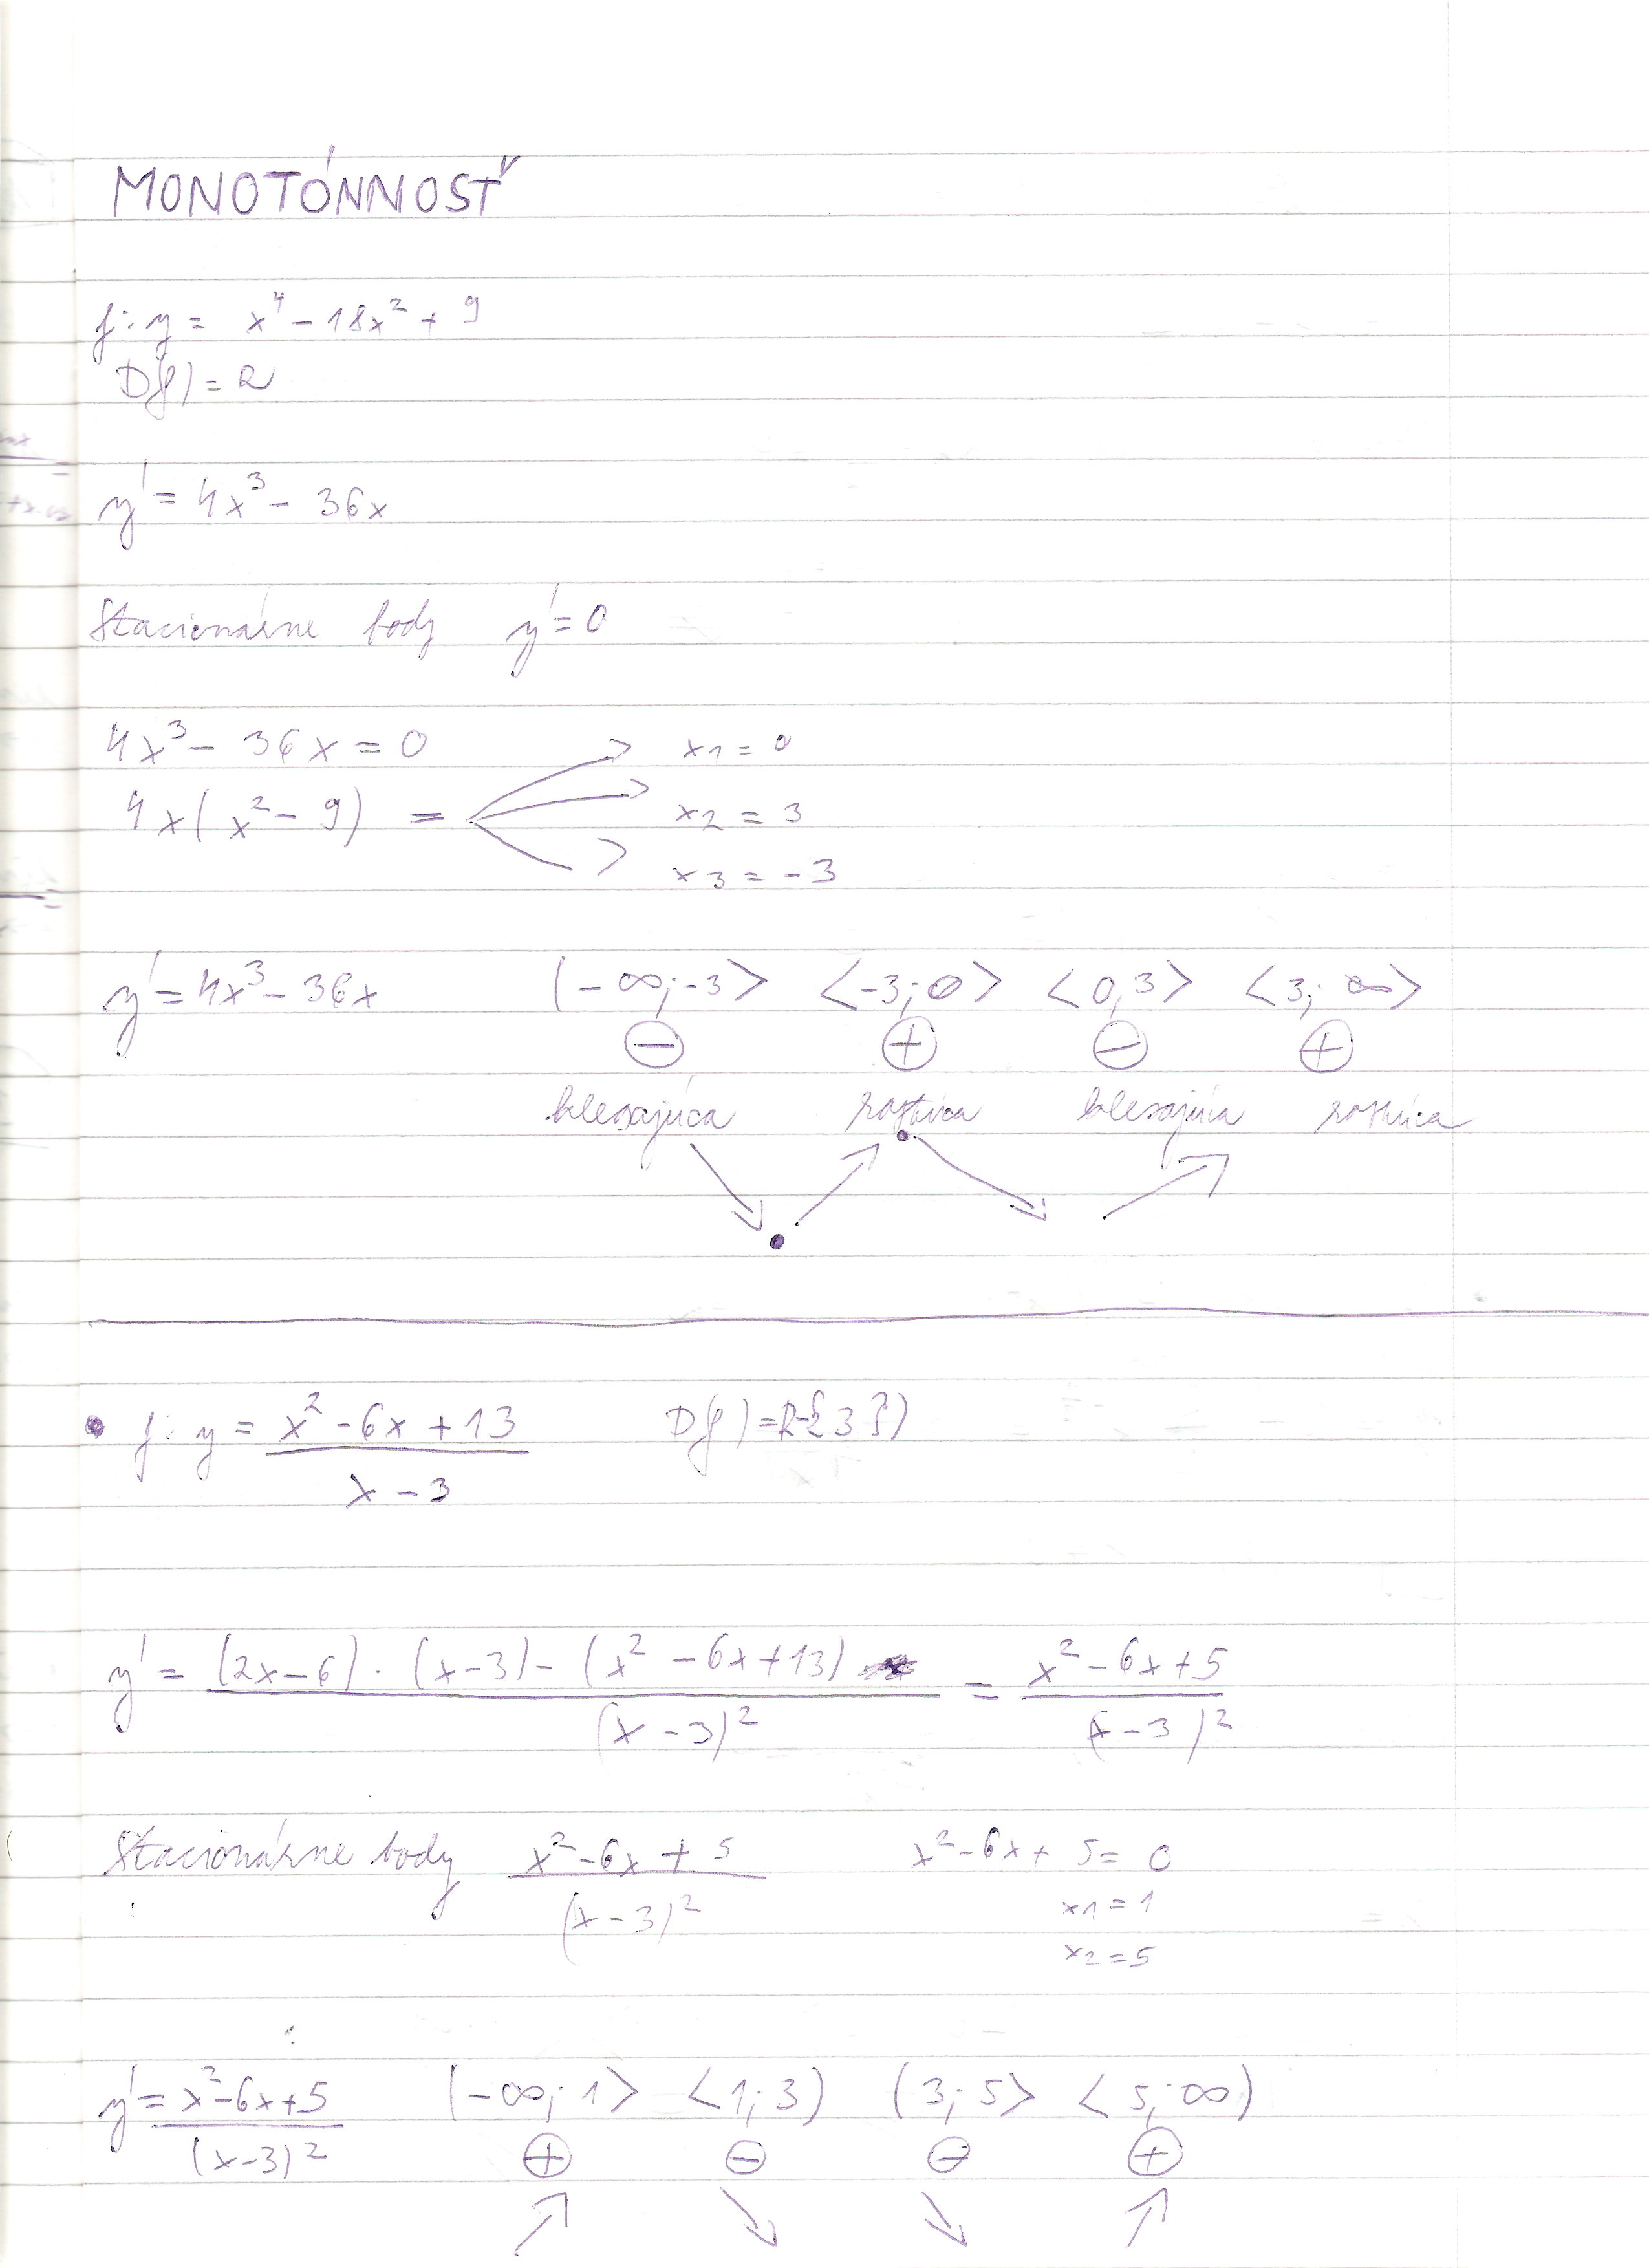 MONOTÓNNOSŤ
f: y = x⁴ - 18x² + 9
D(f) = R
y' = 4x³ - 36x
Stacionárne body y' = 0
4x³ - 36x = 0 x1 = 0
4x(x² - 9) = x2 = 3
x3 = -3
y' = 4x³ - 36x (-∞; -3> <-3; 0> <0,3> <3; ∞>
- + - +
klesajúca rastúca klesajúca rastúca
f: y = x² - 6x + 13 D(f) = R-{3})
x - 3
y' = (2x-6) · (x-3) - (x² - 6x + 13) = x² - 6x + 5
(x - 3)² (x - 3)²
Stacionárne body x² - 6x + 5 x² - 6x + 5 = 0
: (x - 3)² x1 = 1
x2 = 5
y' = x² - 6x + 5 (-∞; 1> <1; 3) (3; 5> <5; ∞)
(x-3)² + - - +